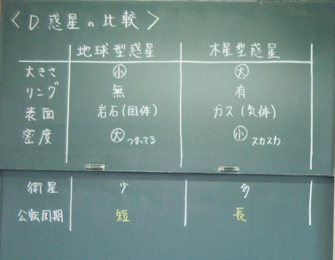 〈D 惑星の比較〉
地球型惑星 木星型惑星
大きさ 小 大
リング 無 有
表面 岩石(固体) ガス(気体)
密度 大 つまってる 小 スカスカ
衛星 少 多
公転周期 短 長